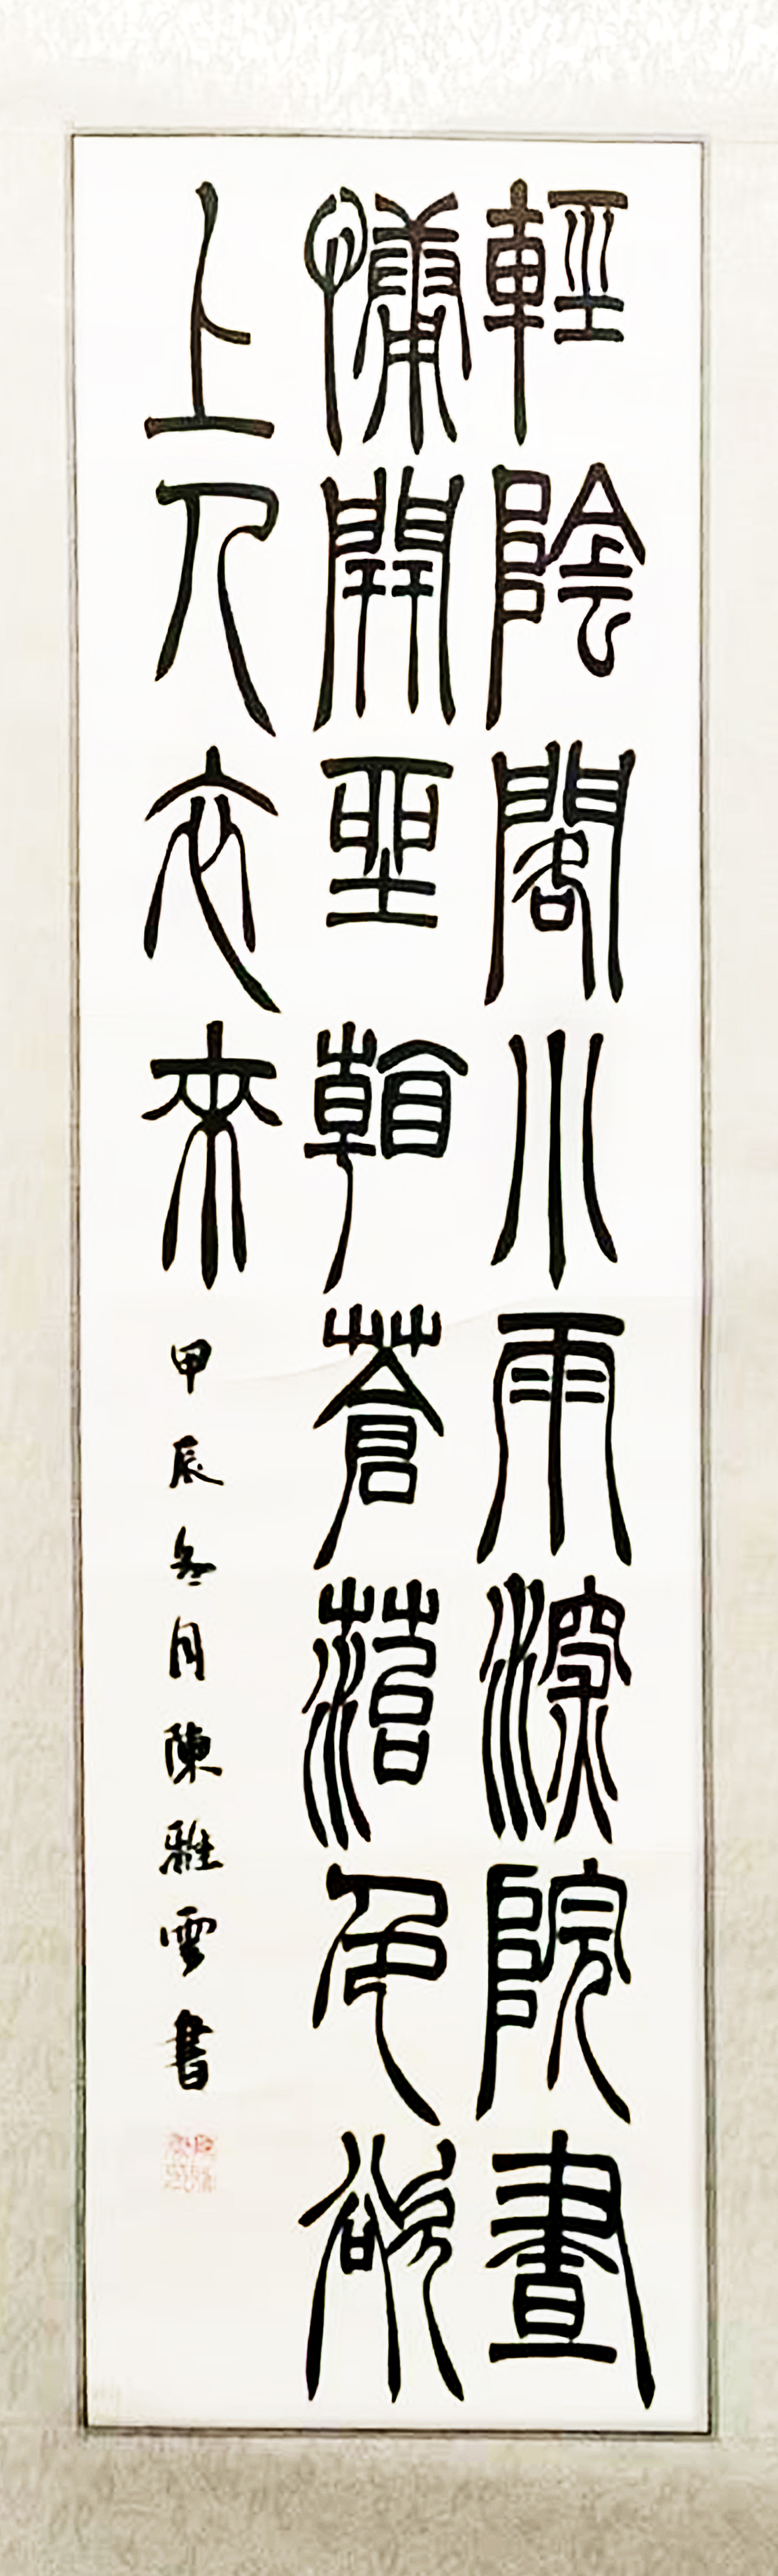 輕陰閣小雨深院晝
慵開坐看蒼苔色欲
上人衣來
甲辰冬月陳雅雲書